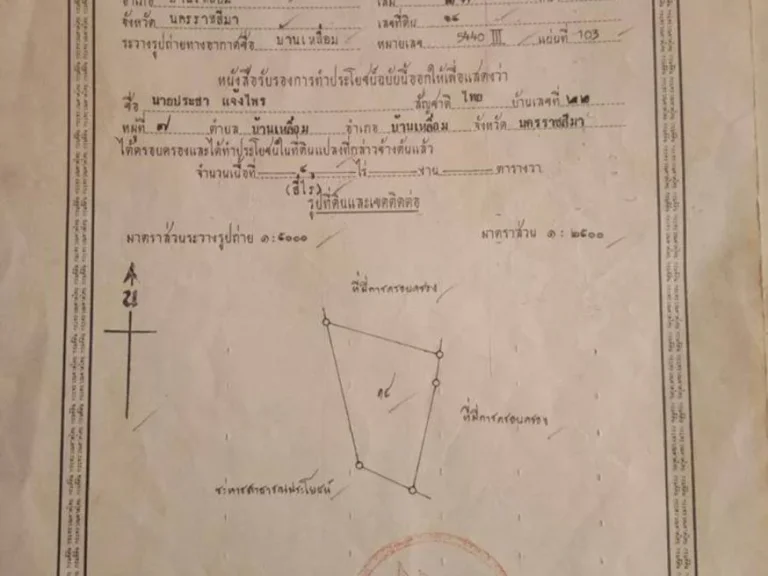 อำเภอ บ้านเหลื่อม เล่ม
จังหวัด นครราชสีมา เลขที่ดิน ๑๔
ระวางรูปถ่ายทางอากาศชื่อ บ้านเหลื่อม หมายเลข 5440 III แผ่นที่ 103
หนังสือรับรองการทำประโยชน์ฉบับนี้ออกให้เพื่อแสดงว่า
ชื่อ นายประชา แจ้งไพร สัญชาติ ไทย บ้านเลขที่ ๒๒
หมู่ที่ ๗ ตำบล บ้านเหลื่อม อำเภอ บ้านเหลื่อม จังหวัด นครราชสีมา
ได้ครอบครองและได้ทำประโยชน์ในที่ดินแปลงที่กล่าวข้างต้นแล้ว
จำนวนเนื้อที่ ๔ ไร่ งาน ตารางวา
(สี่ไร่)
รูปที่ดินและเขตติดต่อ
มาตราส่วนระวางรูปถ่าย ๑:๕๐๐๐ มาตราส่วน ๑ : ๒๕๐๐
น
ที่มีการครอบครอง
๑๔
ที่มีการครอบครอง